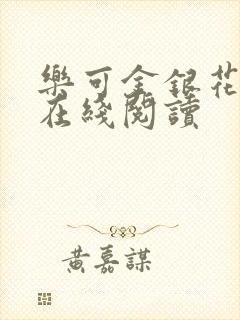 樂可金銀花
在綫閱讀
黃嘉謀